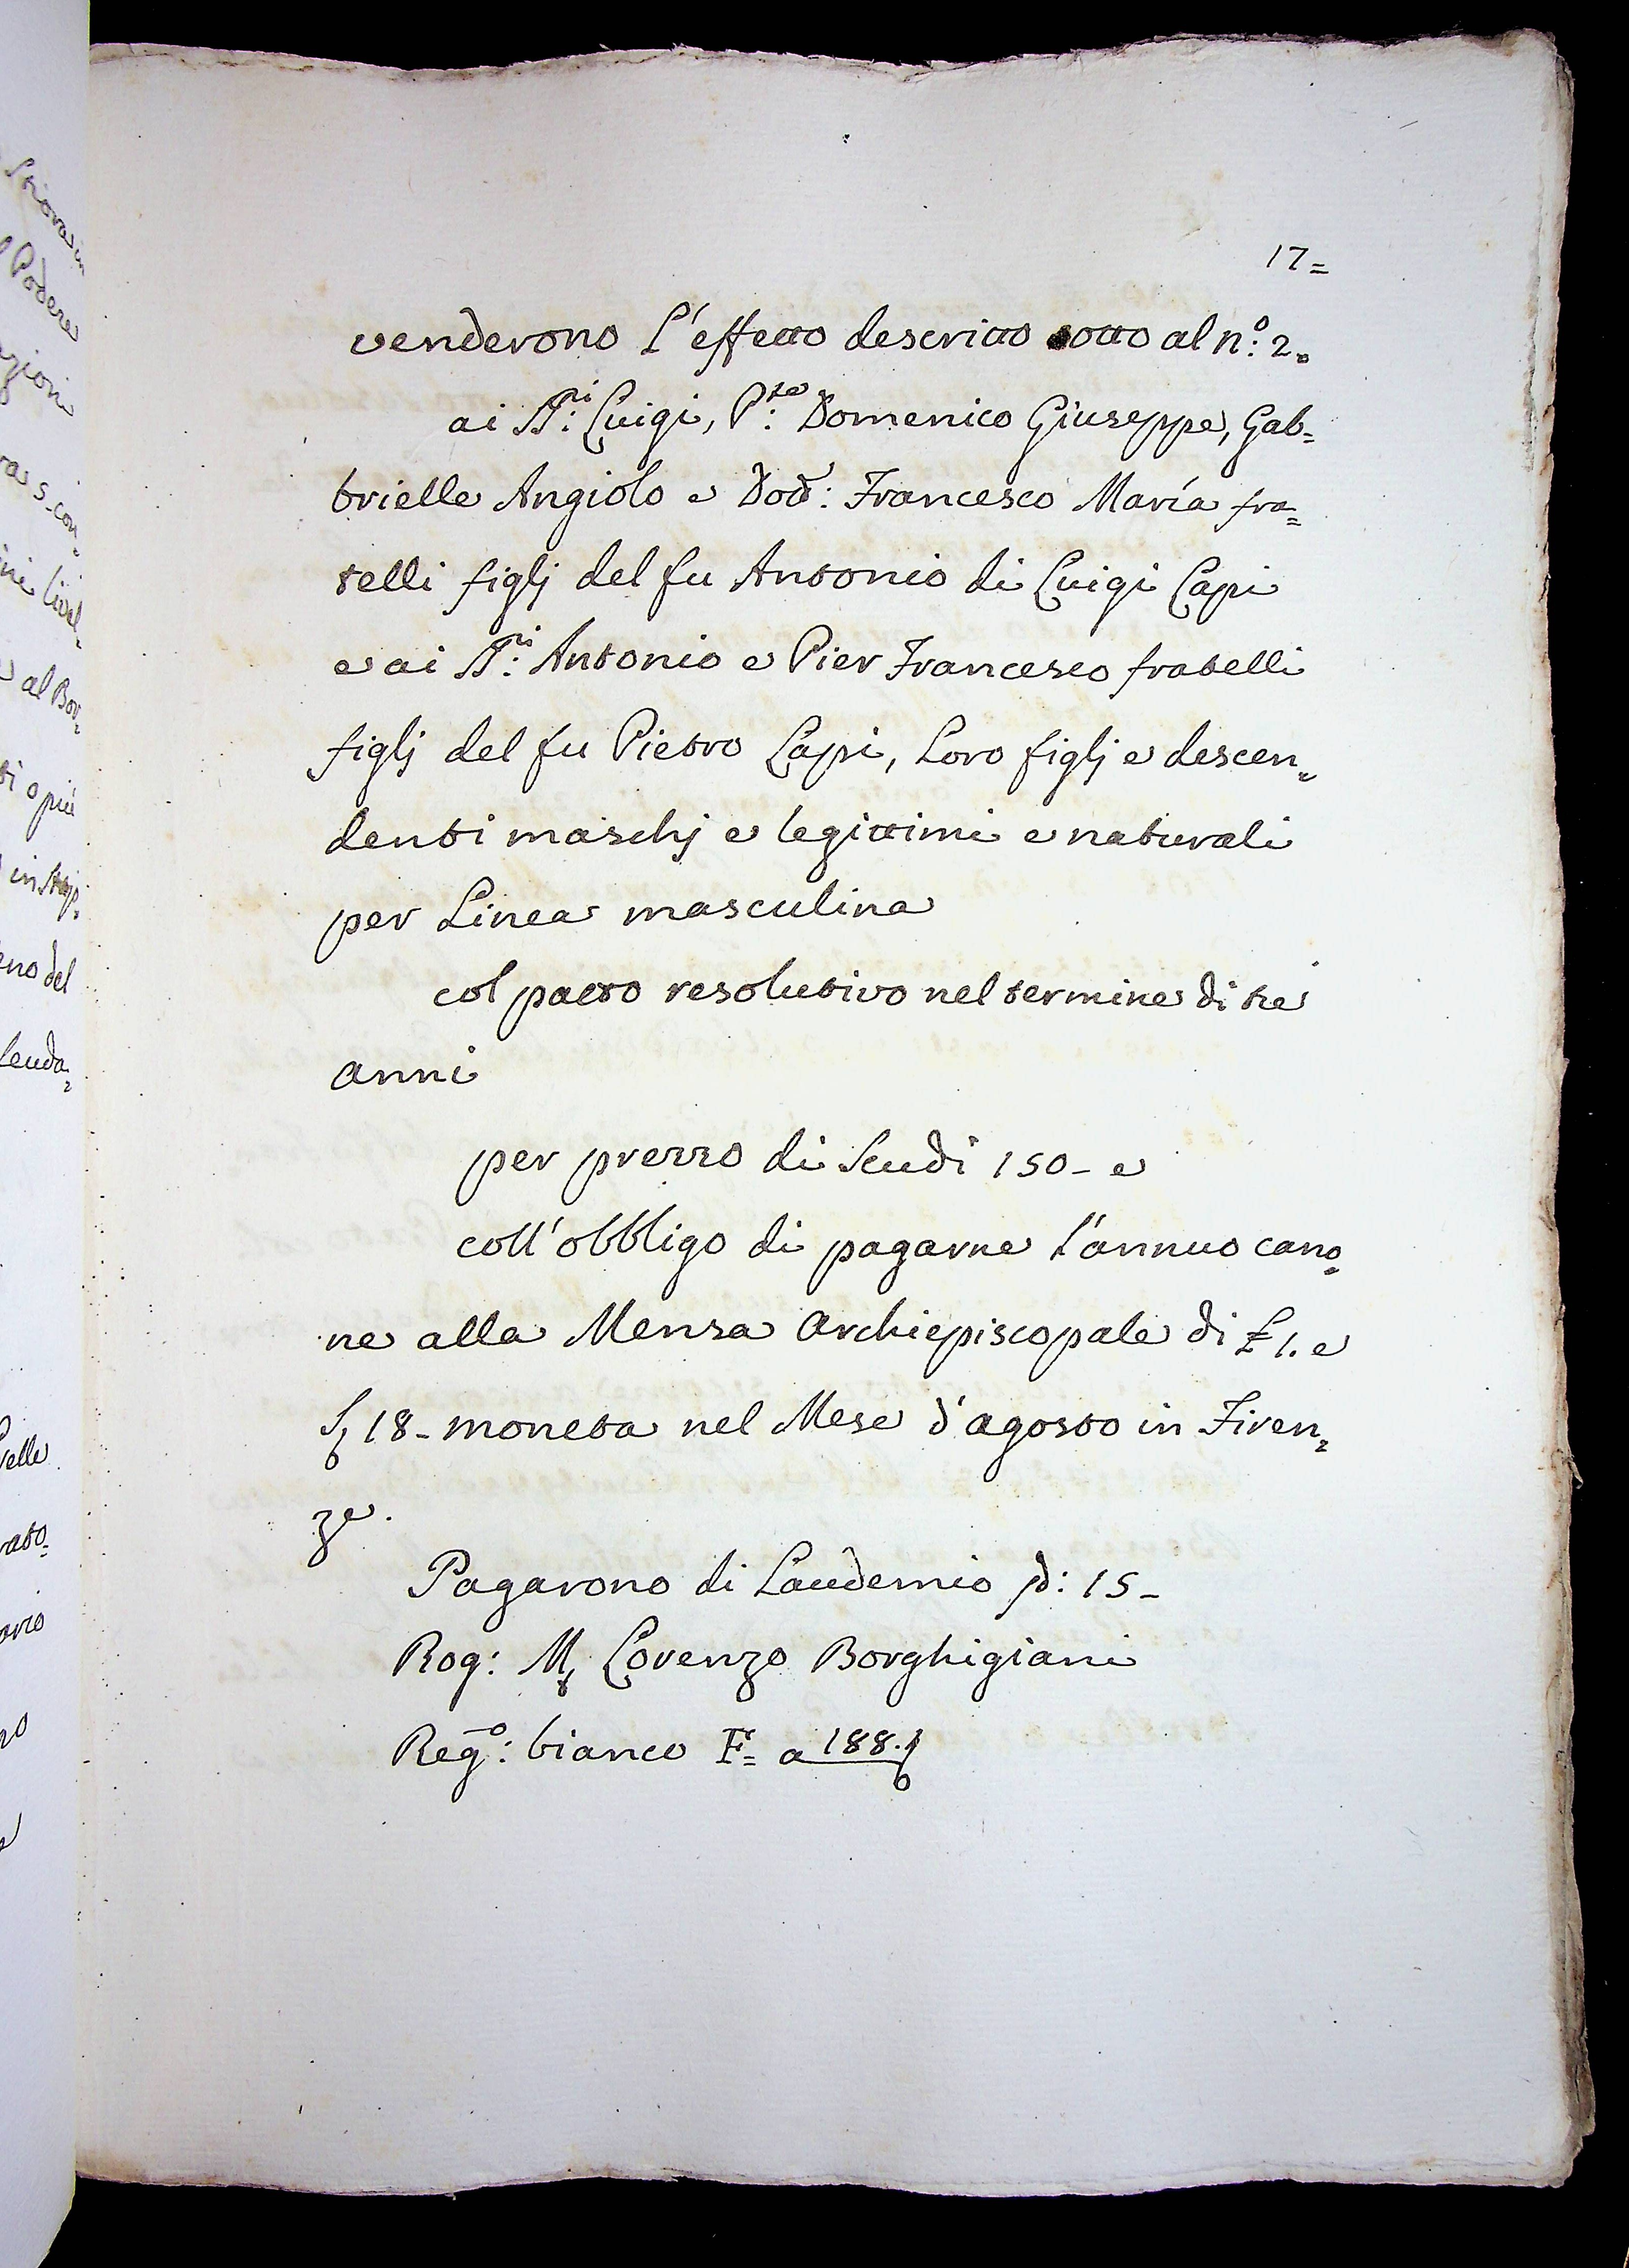 17=
venderono l'effetto descritto sotto al n.º 2.
ai SS.ri Luigi, P.te Domenico Giuseppe, Gab=
brielle Angiolo e Dott: Francesco Maria fra=
telli figlj del fu Antonio di Luigi Lapi
e ai SS.ri Antonio e Pier Francesco fratelli
figlj del fu Pietro Lapi, Loro figlj e descen=
denti maschj e legittimi e naturali
per Linea masculina
col patto resolutivo nel termine di tre
anni
per prezzo di Scudi 150- e
coll'obbligo di pagarne l'annuo cano=
ne alla Mensa Archiepiscopale di £ 1. e
S 18- moneta nel Mese d'agosto in Firen=
ze.
Pagarono di Laudemio s: 15-
Rog: M Lorenzo Borghigiani
Reg.º: bianco F= a 188.